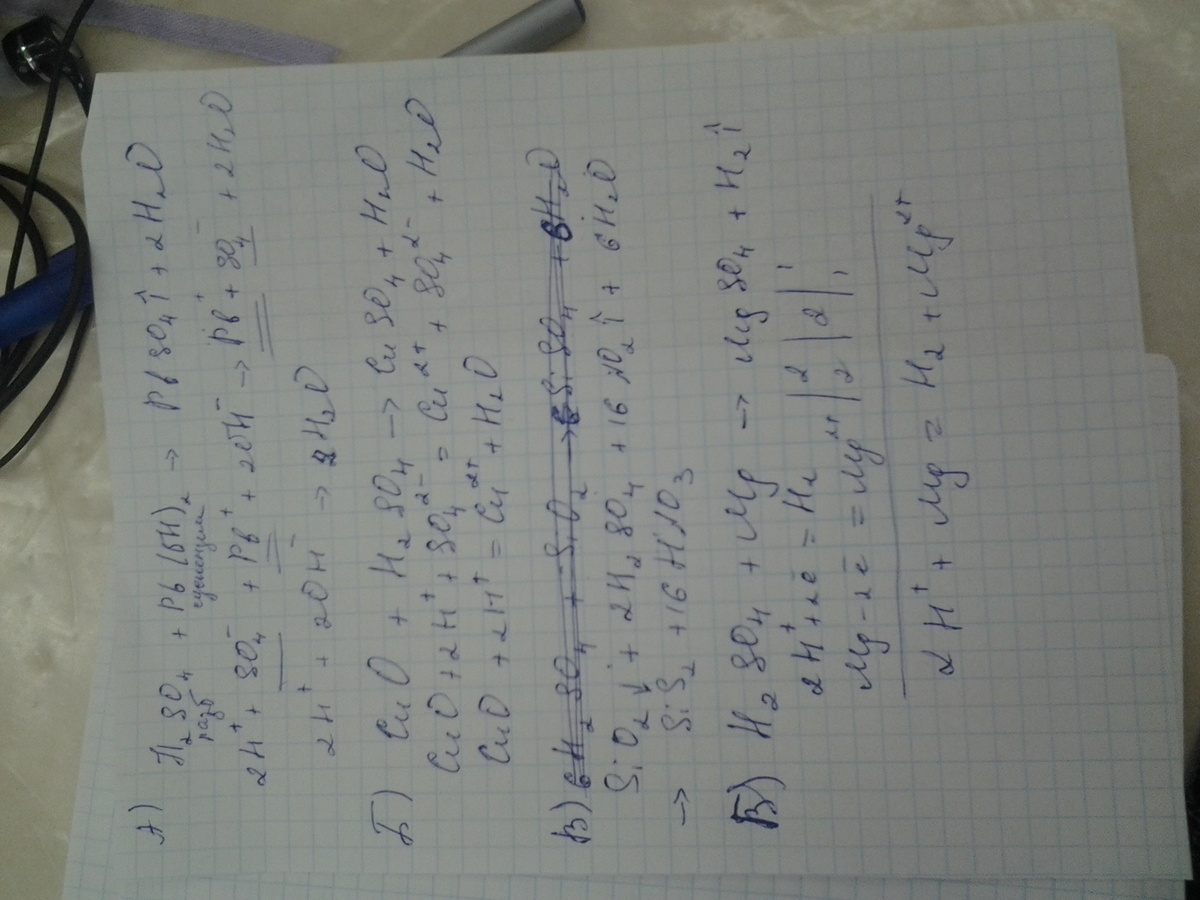 А) H₂SO₄ + Pb(OH)₂ → PbSO₄↑ + 2H₂O
разб
2H⁺ + SO₄⁻ + Pb⁺ + 2OH⁻ → Pb⁺ + SO₄⁻ + 2H₂O
2H⁺ + 2OH⁻ → 2H₂O
Б) CuO + H₂SO₄ → CuSO₄ + H₂O
CuO + 2H⁺ + SO₄²⁻ = Cu²⁺ + SO₄²⁻ + H₂O
CuO + 2H⁺ = Cu²⁺ + H₂O
В) 6H₂SO₄ + SiO₂ → 6SiSO₄ + 6H₂O
SiO₂↓ + 2H₂SO₄ + 16NO₂↑ + 6H₂O
→ SiS₂ + 16HNO₃
Б) H₂SO₄ + Mg → MgSO₄ + H₂↑
2H⁺ + 2ē = H₂ | 2 | 2 | 1
Mg - 2ē = Mg²⁺ | 2 | | 1
2H⁺ + Mg = H₂ + Mg²⁺